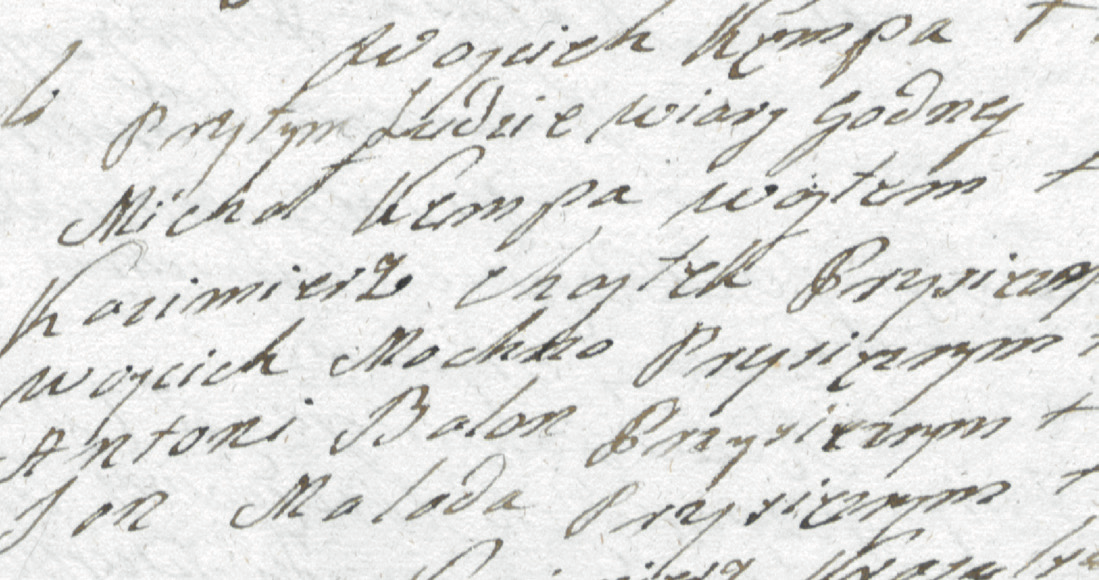 Woyciek Kempa +
li Przytym Ludzie wiary godney
Michał Kempa woytem +
Kazimierz Choytek Przysieznym
Woyciek Mochno Przysieznym
Antoni Balon Przysieznym +
Jan Maloda Przysieznym +